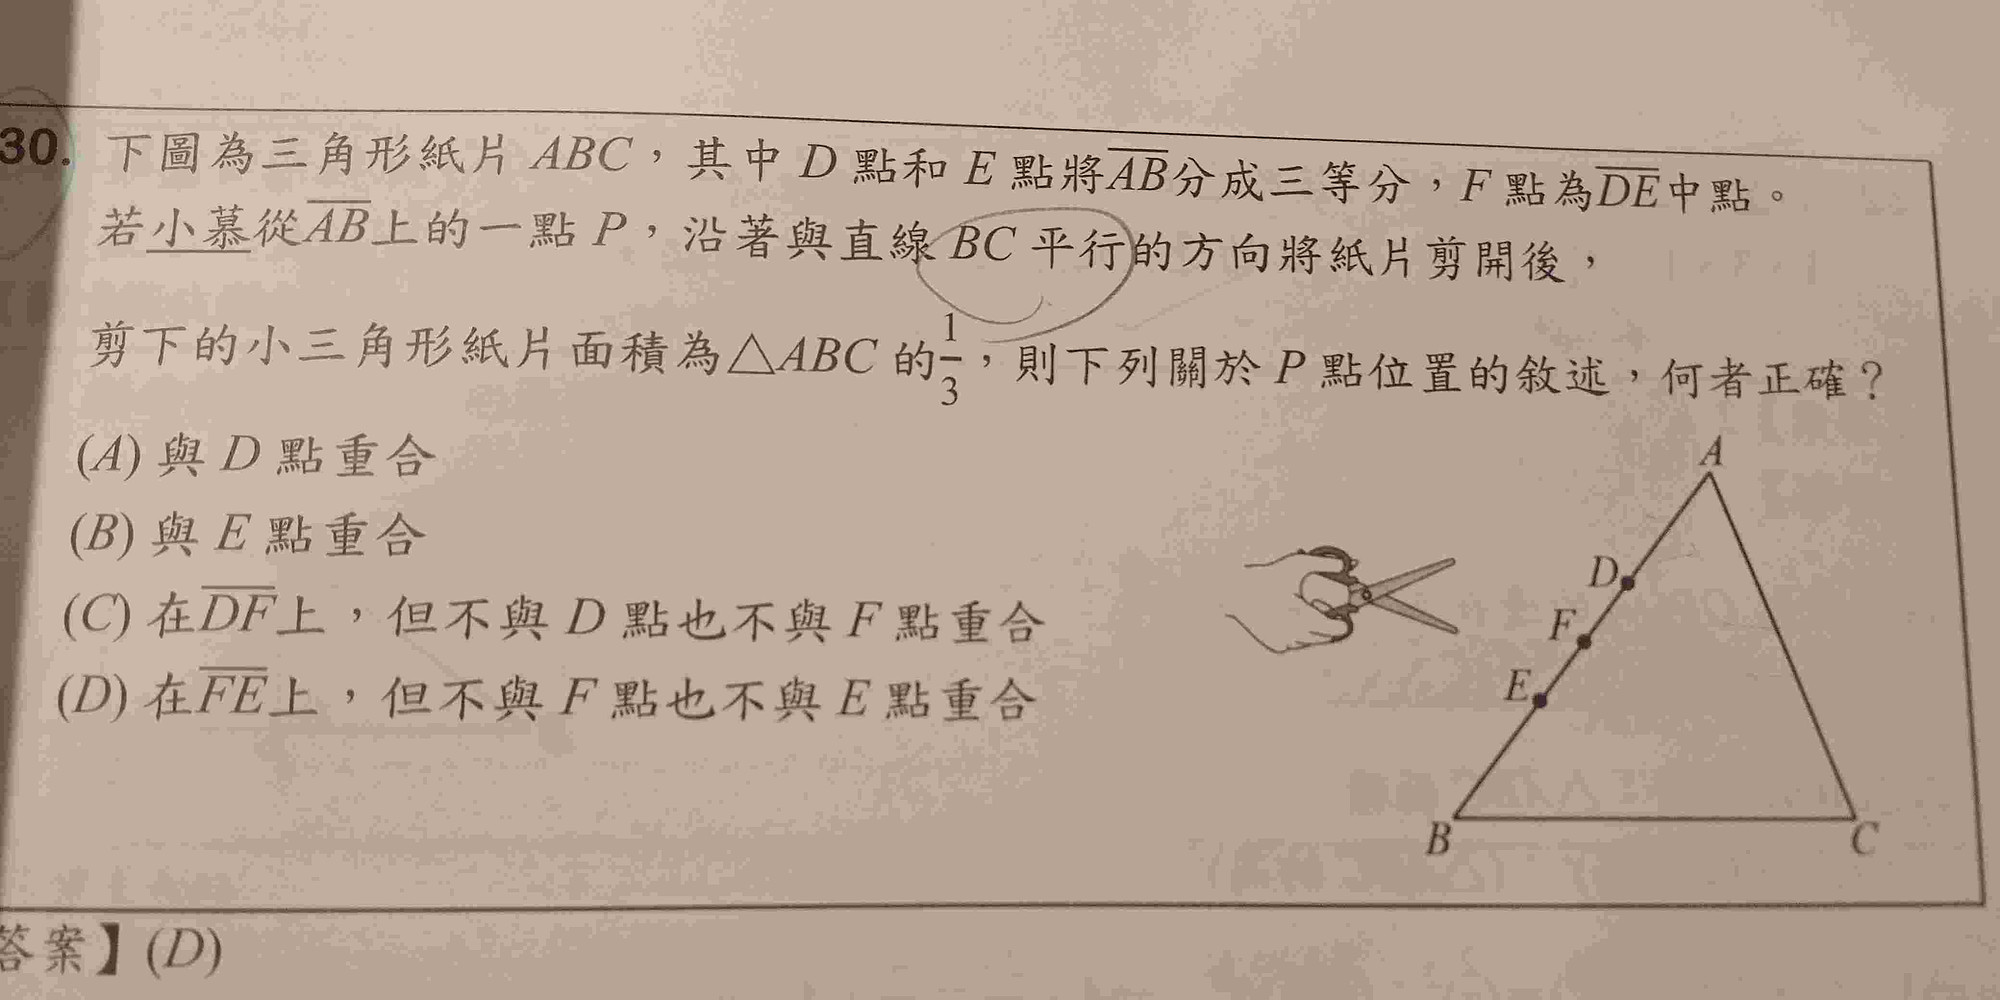 30. 下圖為三角形紙片 ABC，其中 D 點和 E 點將AB分成三等分，F 點為DE中點。
若小慕從AB上的一點 P，沿著與直線 BC 平行的方向將紙片剪開後，
剪下的小三角形紙片面積為△ABC 的1/3，則下列關於 P 點位置的敘述，何者正確？
(A) 與 D 點重合
(B) 與 E 點重合
(C) 在DF上，但不與 D 點也不與 F 點重合
(D) 在FE上，但不與 F 點也不與 E 點重合
A
D
F
E
B
C
答案】(D)